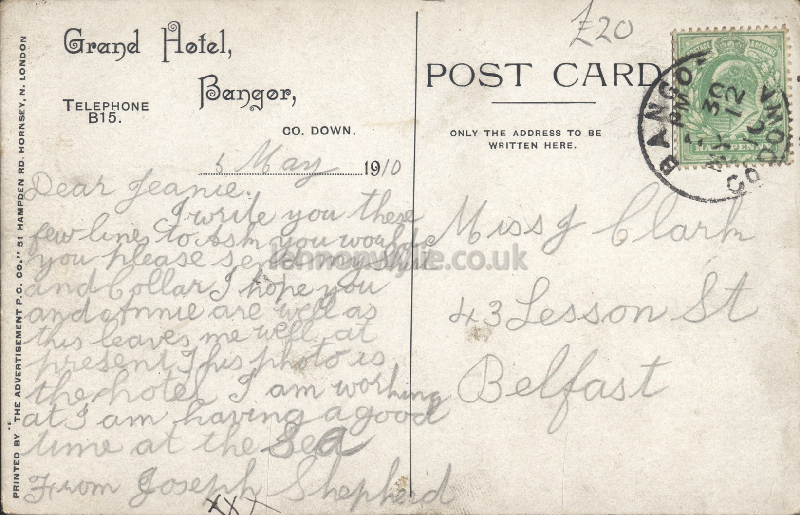 Grand Hotel,
Bangor,
TELEPHONE
B15.
CO. DOWN.
5 May 1910
Dear Jeanie.
I write you these
few line to Ask you would
you please send my
and Collar I hope you
and annie are well as
this leaves me well at
present This photo is
the hotel I am working
at I am having a good
time at the Sea
From Joseph Shepherd
XXX
PRINTED BY "THE ADVERTISEMENT P.C. CO." 51 HAMPDEN RD. HORNSEY, N. LONDON
£20
POST CARD
ONLY THE ADDRESS TO BE
WRITTEN HERE.
BANGOR
CO. DOWN
Miss J Clark
43 Lesson St
Belfast